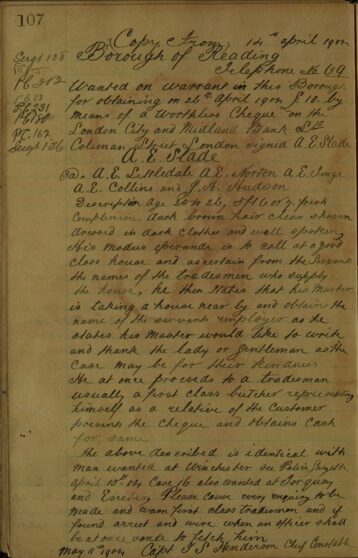 107
(Copy From 14th April 1902
Borough of Reading
Telephone No 69
Sergt 138
PC 202
PC 231
PC 180
PC 162
Sergt 136
Wanted on warrant in this Borough
for obtaining on 26th April 1902 £10. by
means of a Worthless Cheque on the
London City and Midland Bank Ltd
Coleman Street London signed A.E. Slade
A.E. Slade
A.E. Littledale A.E. Norton A.E. Tonge
A.E. Collins and J.A. Hudson
Description Age 25 to 26, 5ft 6 or 7. fresh
Complexion, dark brown hair clean shaven
dressed in dark clothes and well spoken
His modus operandi is to call at a good
class house and ascertain from the Servants
the names of the tradesmen who supply
the house, he then states that his Master
is taking a house near by and obtains the
name of the servants employer as he
states his Master would like to write
and thank the lady or Gentleman as the
Case may be for their kindness
He at once proceeds to a tradesman
usually a first class butcher representing
himself as a relative of the Customer
presents the Cheque and obtains Cash
for same
The above described is identical with
man wanted at Winchester see Police Gazette
April 15th Case 16 also wanted at Torquay
and Exeter. Please cause every enquiry to be
made and warn first class tradesmen and if
found arrest and wire when an officer shall
be at once sent to fetch him
May 11th 1902 Capt J S Henderson Chief Constable